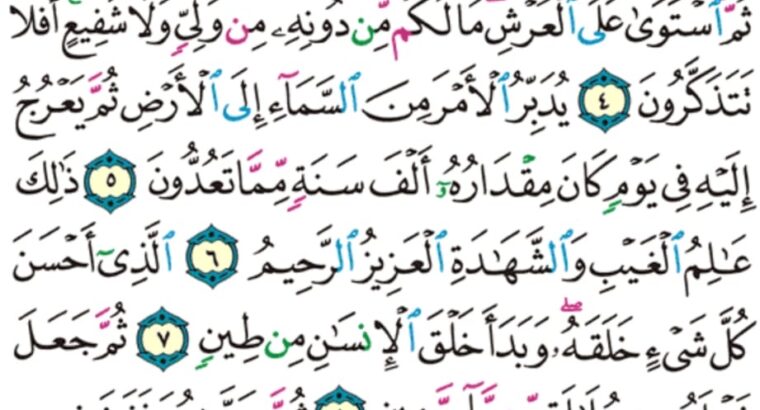 ثُمَّ ٱسْتَوَىٰ عَلَى ٱلْعَرْشِ مَا لَكُم مِّن دُونِهِۦ مِن وَلِىٍّ وَلَا شَفِيعٍ أَفَلَا
تَتَذَكَّرُونَ ٤ يُدَبِّرُ ٱلْأَمْرَ مِنَ ٱلسَّمَآءِ إِلَى ٱلْأَرْضِ ثُمَّ يَعْرُجُ
إِلَيْهِ فِى يَوْمٍ كَانَ مِقْدَارُهُۥٓ أَلْفَ سَنَةٍ مِّمَّا تَعُدُّونَ ٥ ذَٰلِكَ
عَـٰلِمُ ٱلْغَيْبِ وَٱلشَّهَـٰدَةِ ٱلْعَزِيزُ ٱلرَّحِيمُ ٦ ٱلَّذِىٓ أَحْسَنَ
كُلَّ شَىْءٍ خَلَقَهُۥ ۖ وَبَدَأَ خَلْقَ ٱلْإِنسَـٰنِ مِن طِينٍ ٧ ثُمَّ جَعَلَ